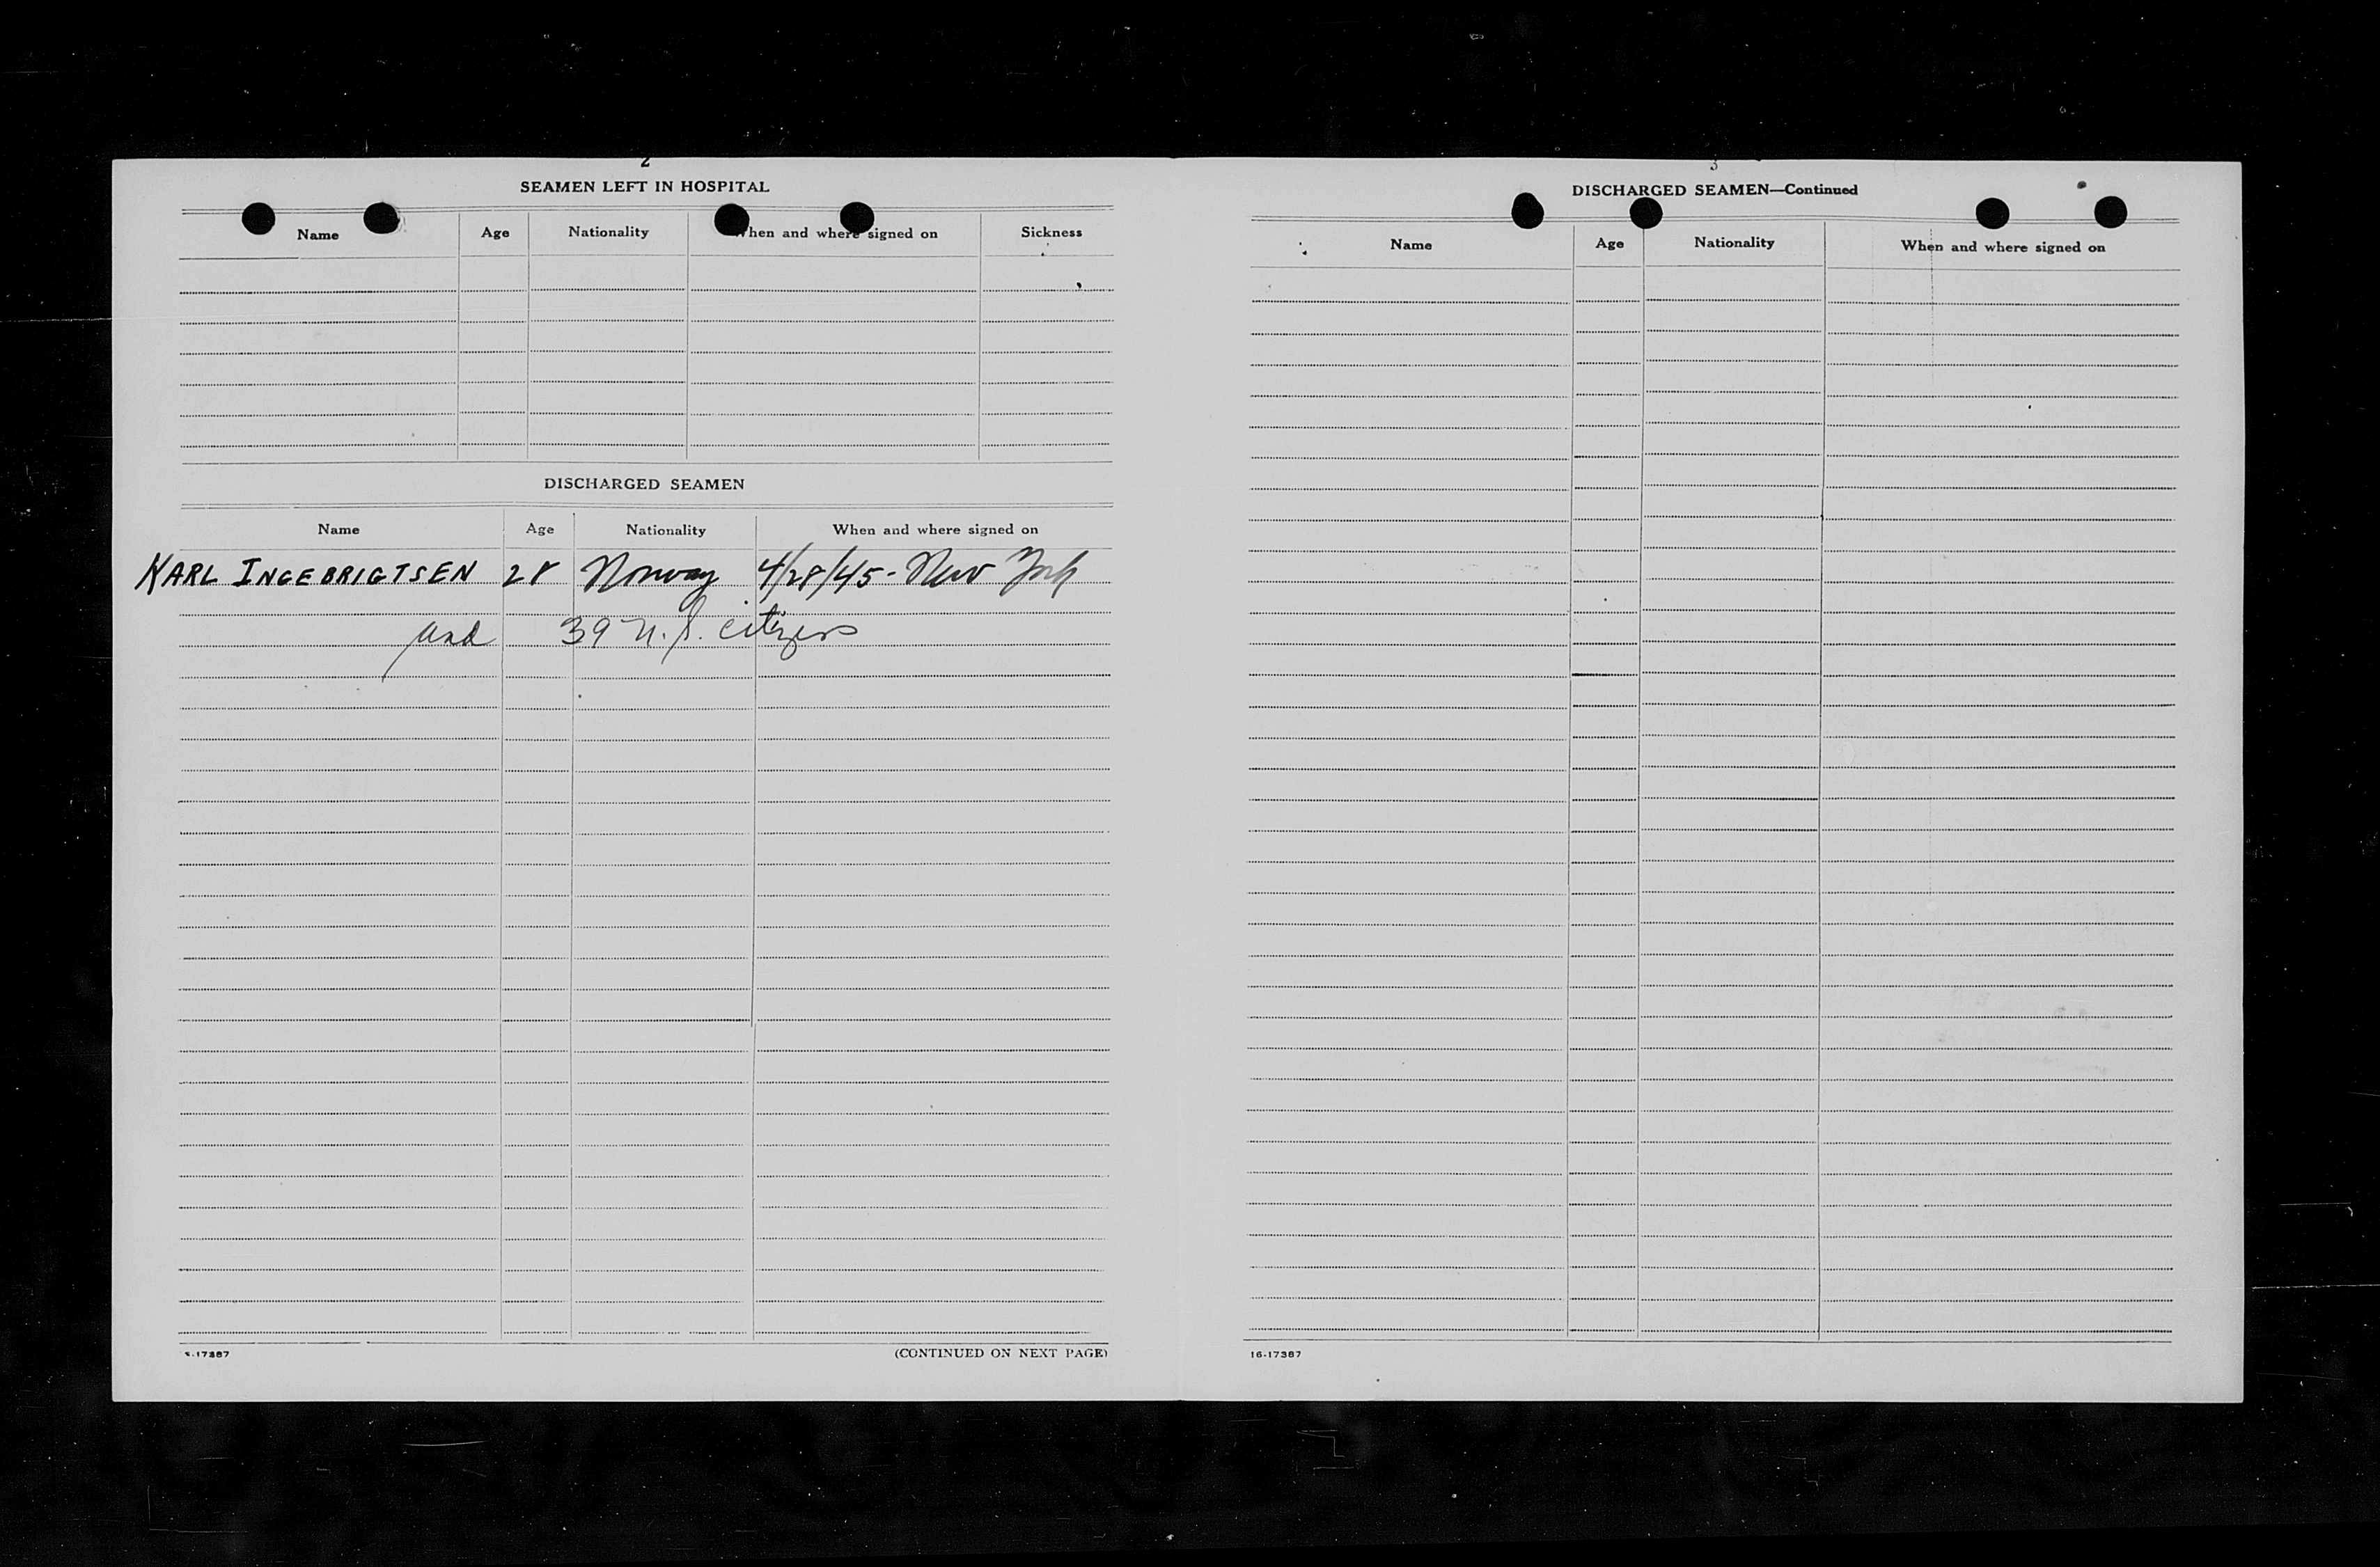 2
SEAMEN LEFT IN HOSPITAL
Name Age Nationality When and where signed on Sickness
DISCHARGED SEAMEN
Name Age Nationality When and where signed on
KARL INGEBRIGTSEN 28 Norway 4/28/45 - New York
and 39 U.S. citizens
(CONTINUED ON NEXT PAGE)
3
DISCHARGED SEAMEN—Continued
Name Age Nationality When and where signed on
16-17387